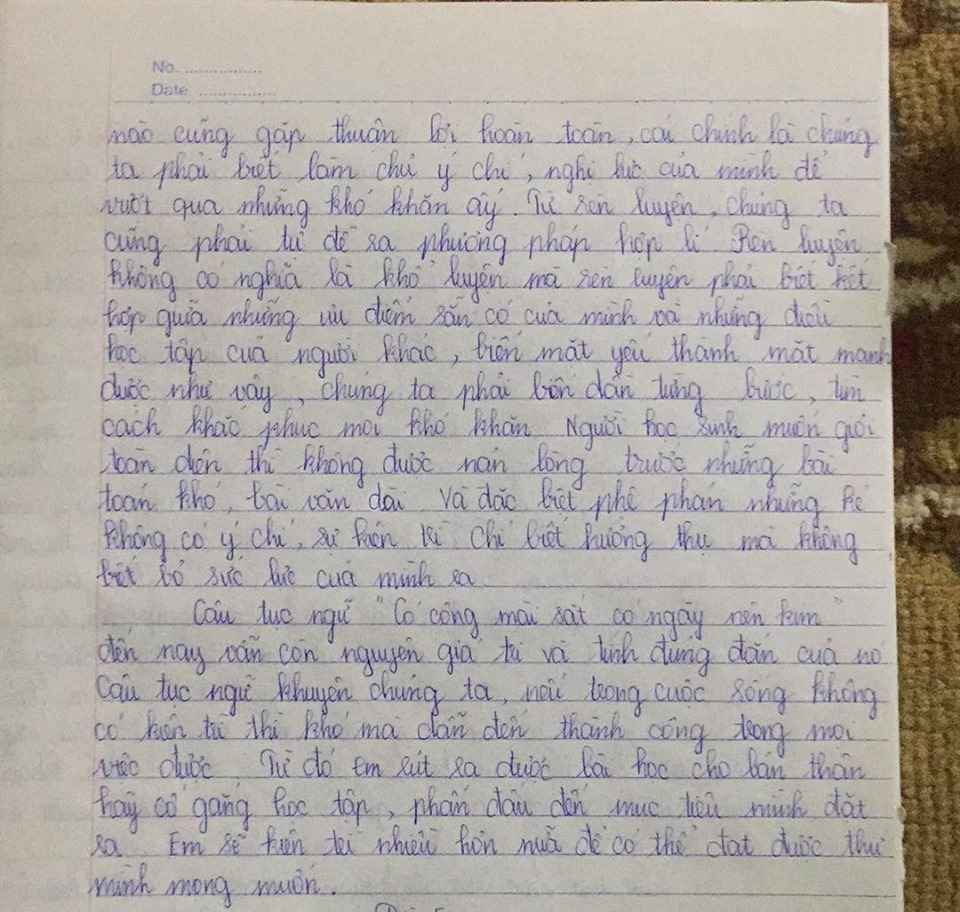 No. ................
Date ................
nào cũng gặp thuận lợi hoàn toàn, cái chính là chúng
ta phải biết làm chủ ý chí, nghị lực của mình để
vượt qua những khó khăn ấy. Tự rèn luyện, chúng ta
cũng phải tự đề ra phương pháp hợp lí Rèn luyện
không có nghĩa là khổ luyện mà rèn luyện phải biết kết
hợp giữa những ưu điểm sẵn có của mình và những điều
học tập của người khác, biến mặt yếu thành mặt mạnh
được như vậy, chúng ta phải tiến dần từng bước, tìm
cách khắc phục mọi khó khăn Người học sinh muốn giỏi
toàn diện thì không được nản lòng trước những bài
toán khó, bài văn dài Và đặc biệt phê phán những kẻ
không có ý chí, sự kiên trì Chỉ biết hưởng thụ mà không
biết bỏ sức lực của mình ra
Câu tục ngữ "Có công mài sắt có ngày nên kim"
đến nay vẫn còn nguyên giá trị và tính đúng đắn của nó
Câu tục ngữ khuyên chúng ta, nếu trong cuộc sống không
có kiên trì thì khó mà dẫn đến thành công trong mọi
việc được. Từ đó em rút ra được bài học cho bản thân
hãy cố gắng học tập, phấn đấu đến mục tiêu mình đặt
ra. Em sẽ kiên trì nhiều hơn nữa để có thể đạt được thứ
mình mong muốn.